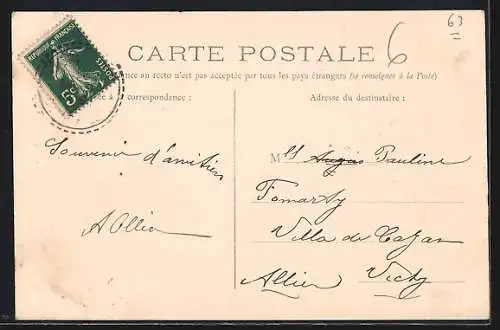 63
6
REPUBLIQUE FRANÇAISE
POSTES
5c
CARTE POSTALE
nce au recto n'est pas acceptée par tous les pays étrangers (se renseigner à la Poste)
ée à correspondance :
Adresse du destinataire :
Souvenir d'amitiés
Mlle Pauline
Villa de
Allier Vichy